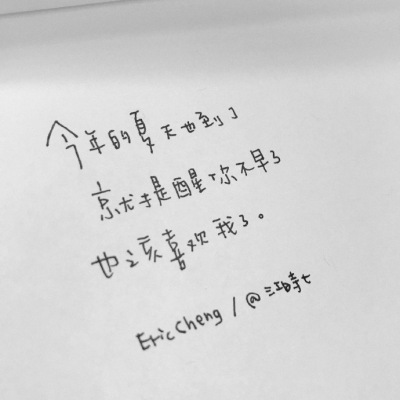 今年的夏天也到了
就提醒你不早了
也该喜欢我了。
Eric Cheng / @